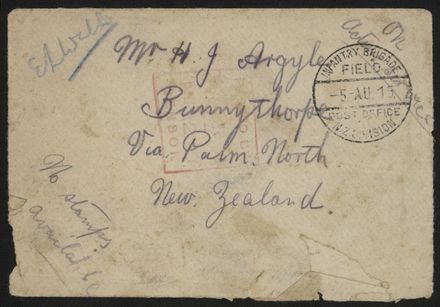 On
Active
Mr H. J Argyle
Bunnythorpe
Via Palm. North
New Zealand.
No stamps
available
INFANTRY BRIGADE
FIELD
-5 AU 15
POST OFFICE
N.Z. DIVISION